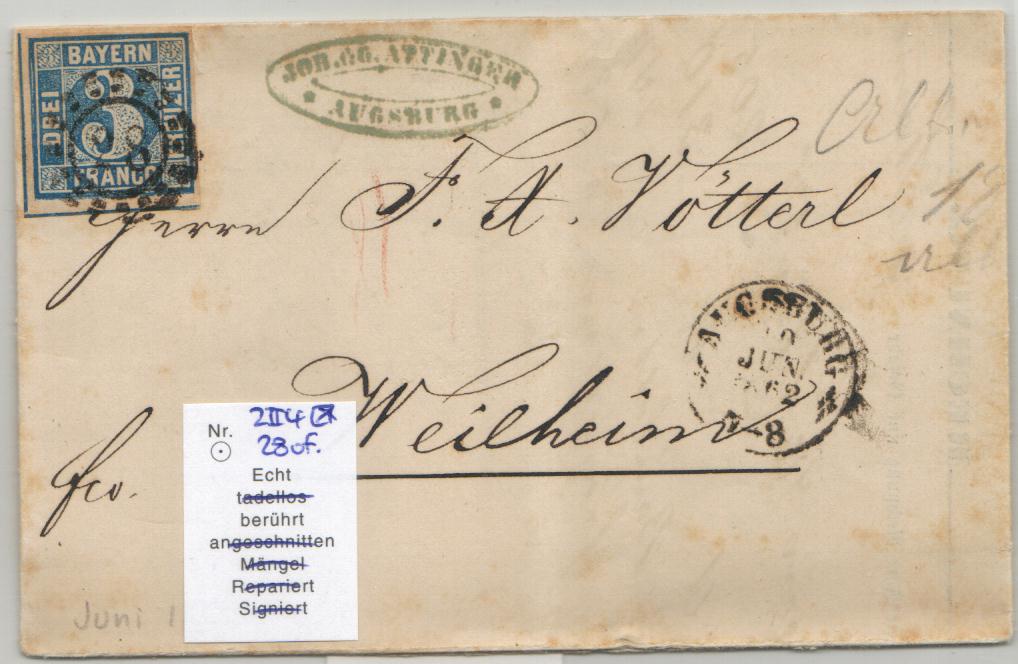 BAYERN
DREI
3
KREUZER
FRANCO
28
JOH. GG. ATTINGER
AUGSBURG
Herrn F. A. Vötterl
AUGSBURG
10
JUN.
1862
7-8
Weilheim
fco.
Nr. 2II4
28 of.
Echt
tadellos
berührt
angeschnitten
Mängel
Repariert
Signiert
Juni 1
12